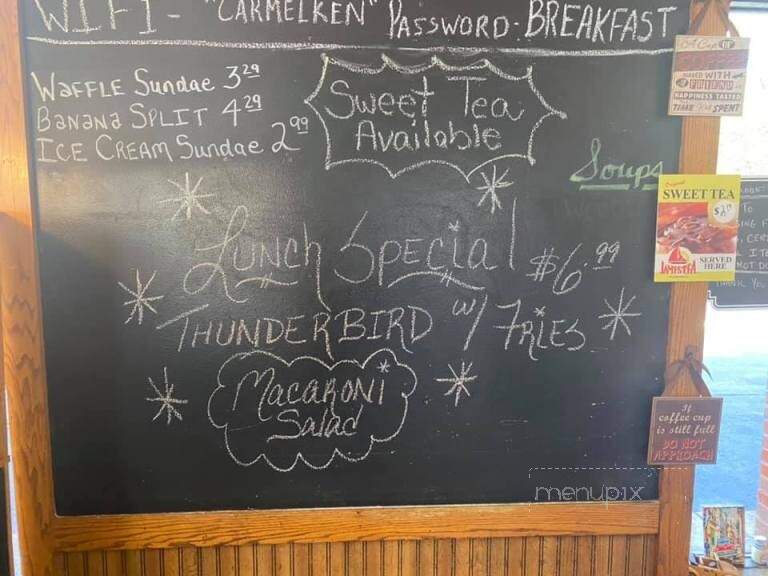 WIFI - "CARMELKEN" PASSWORD - BREAKFAST
WAFFLE Sundae 3 29
BANANA SPLIT 4 29
ICE CREAM Sundae 2 99
Sweet Tea
Available
Soups
LUNCH SPECIAL $6.99
THUNDERBIRD w/ FRIES
MACARONI
Salad
MIXED WITH
FRIEND
HAPPINESS TASTED
TIME Well SPENT
SWEET TEA
SERVED
HERE
If
coffee cup
is still full
DO NOT
APPROACH
menupix